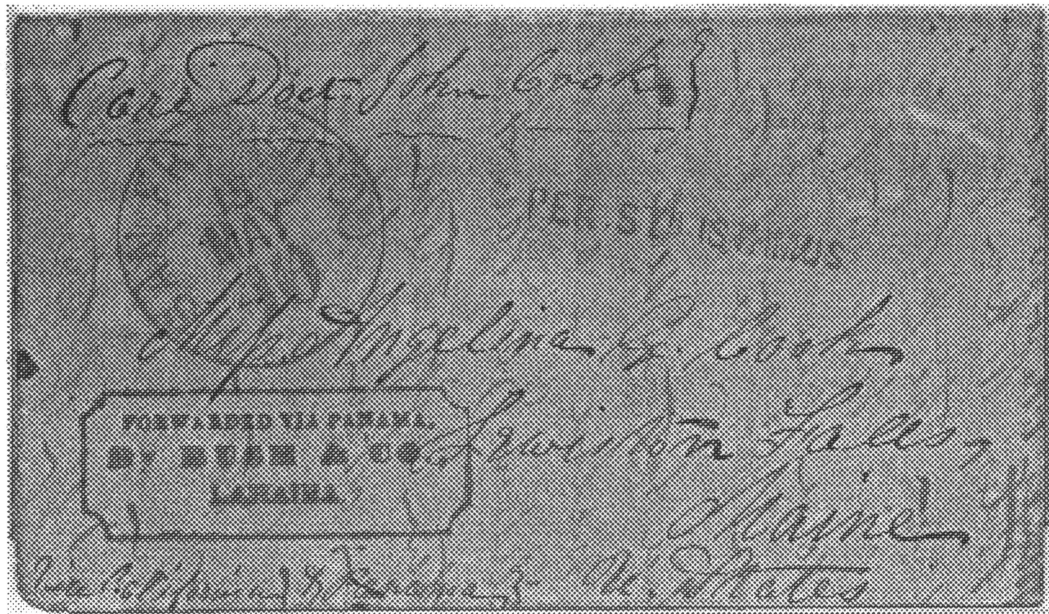 Care Doct. John Cook
PER. STR ISTHMUS
Miss Angelina G. Cook
FORWARDED VIA PANAMA,
By BUSH & CO,
LAHAINA.
Lewiston Falls,
Maine
Via California & Panama U. States